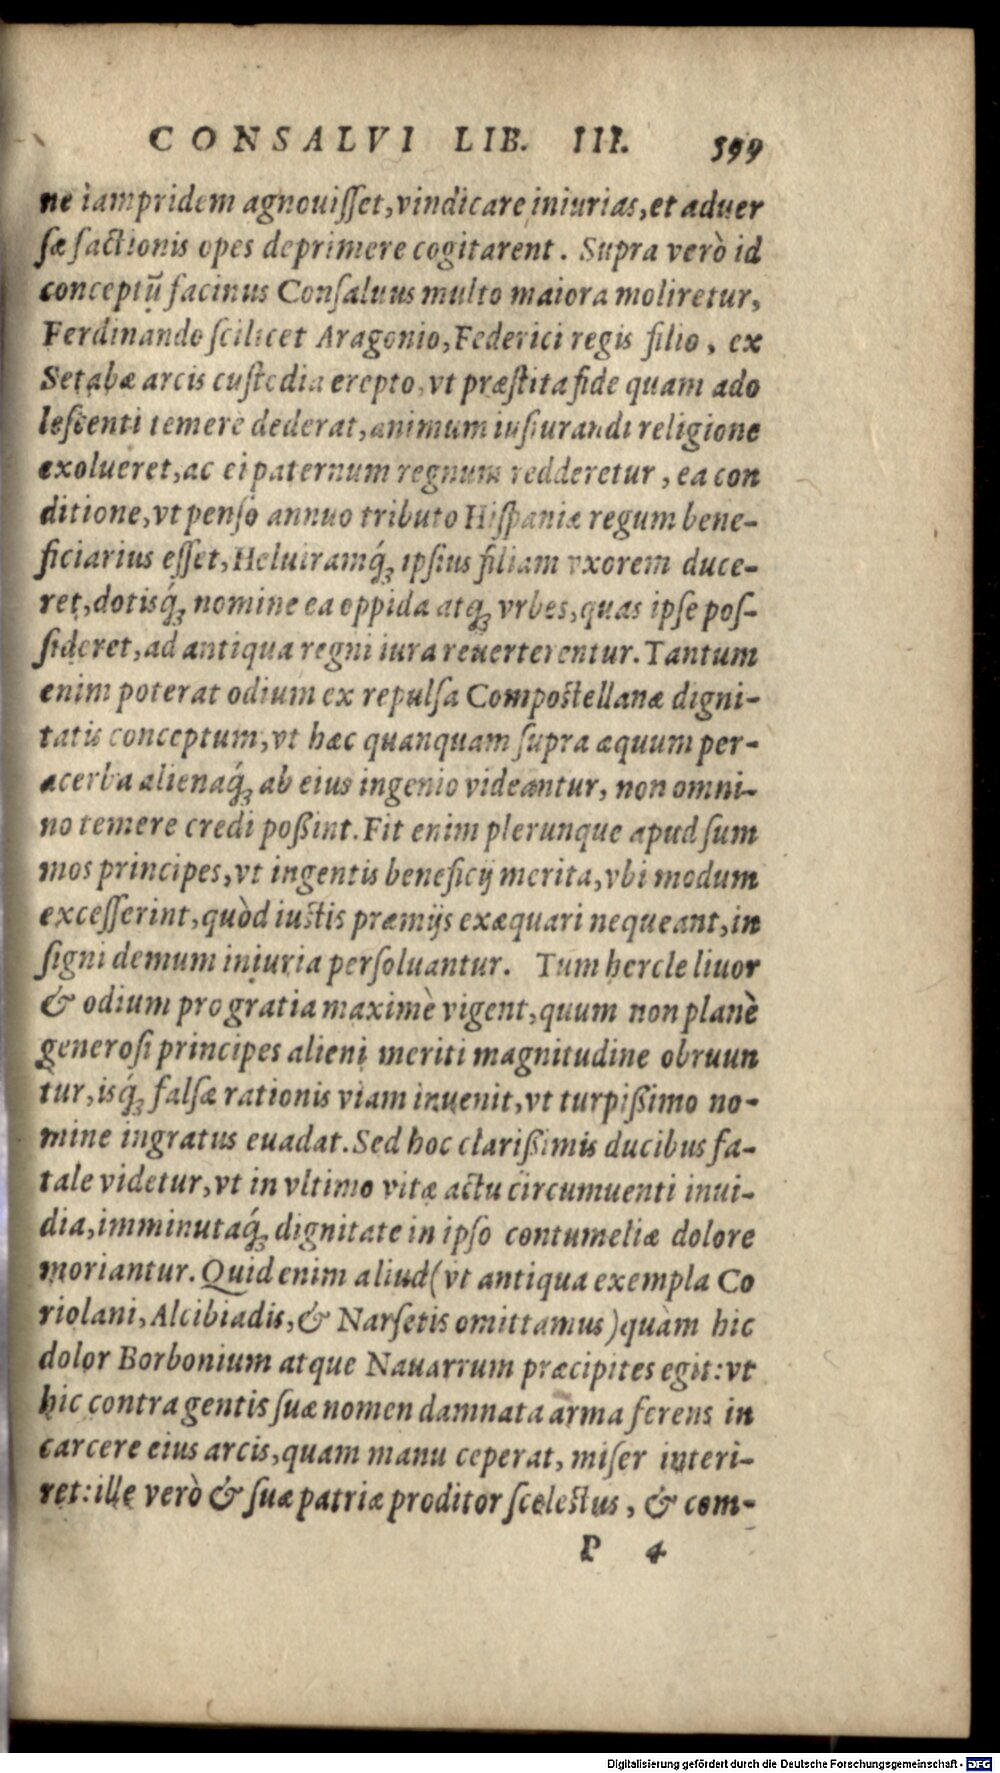 CONSALVI LIB. III. 399
ne iampridem agnouiſſet, vindicare iniurias, et aduer
ſæ factionis opes deprimere cogitarent. Supra verò id
conceptū facinus Conſaluus multo maiora moliretur,
Ferdinando ſcilicet Aragonio, Federici regis filio, ex
Setabæ arcis cuſtodia erepto, vt præſtita fide quam ado
leſcenti temerè dederat, animum iuſiurandi religione
exolueret, ac ei paternum regnum redderetur, ea con
ditione, vt penſo annuo tributo Hiſpaniæ regum bene-
ficiarius eſſet, Heluiramq́; ipſius filiam vxorem duce-
ret, dotisq́; nomine ea oppida atq; vrbes, quas ipſe poſ-
ſideret, ad antiqua regni iura reuerterentur. Tantum
enim poterat odium ex repulſa Compoſtellanæ digni-
tatis conceptum, vt hæc quanquam ſupra æquum per-
acerba alienaq́; ab eius ingenio videantur, non omni-
no temere credi poßint. Fit enim plerunque apud ſum
mos principes, vt ingentis beneficij merita, vbi modum
exceſſerint, quòd iuſtis præmijs exæquari nequeant, in
ſigni demum iniuria perſoluantur. Tum hercle liuor
& odium pro gratia maximè vigent, quum non planè
generoſi principes alieni meriti magnitudine obruun
tur, isq́; falſæ rationis viam inuenit, vt turpißimo no-
mine ingratus euadat. Sed hoc clarißimis ducibus fa-
tale videtur, vt in vltimo vitæ actu circumuenti inui-
dia, imminutaq́; dignitate in ipſo contumeliæ dolore
moriantur. Quid enim aliud (vt antiqua exempla Co
riolani, Alcibiadis, & Narſetis omittamus) quàm hic
dolor Borbonium atque Nauarrum præcipites egit: vt
hic contra gentis ſuæ nomen damnata arma ferens in
carcere eius arcis, quam manu ceperat, miſer interi-
ret: ille verò & ſuæ patriæ proditor ſceleſtus, & com-
P 4
Digitalisierung gefördert durch die Deutsche Forschungsgemeinschaft - DFG